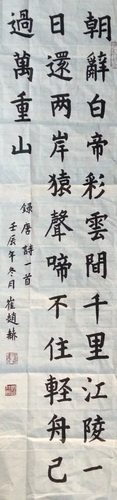 朝辭白帝彩雲間千里江陵一
日還两岸猿聲啼不住輕舟已
過萬重山
錄唐詩一首
壬辰年冬月崔趙赫